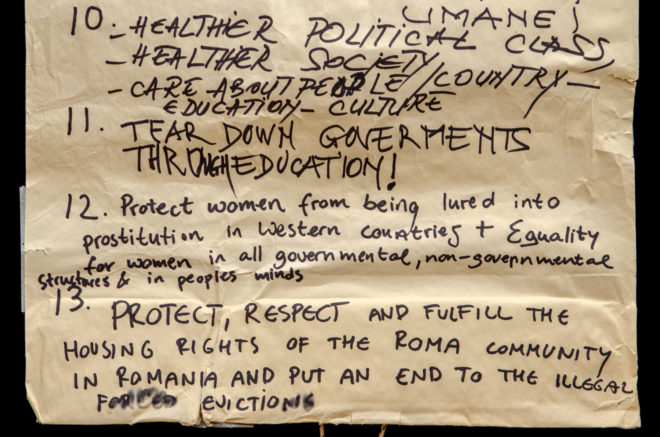 UMANE!
10. - HEALTHIER POLITICAL CLASS,
- HEALTHIER SOCIETY
- CARE ABOUT PEOPLE/COUNTRY -
EDUCATION - CULTURE
11. TEAR DOWN GOVERMENTS
THROUGH EDUCATION!
12. Protect women from being lured into
prostitution in Western countries + Equality
for women in all governmental, non-governmental
structures & in peoples minds
13. PROTECT, RESPECT AND FULFILL THE
HOUSING RIGHTS OF THE ROMA COMMUNITY
IN ROMANIA AND PUT AN END TO THE ILLEGAL
FORCED EVICTIONS